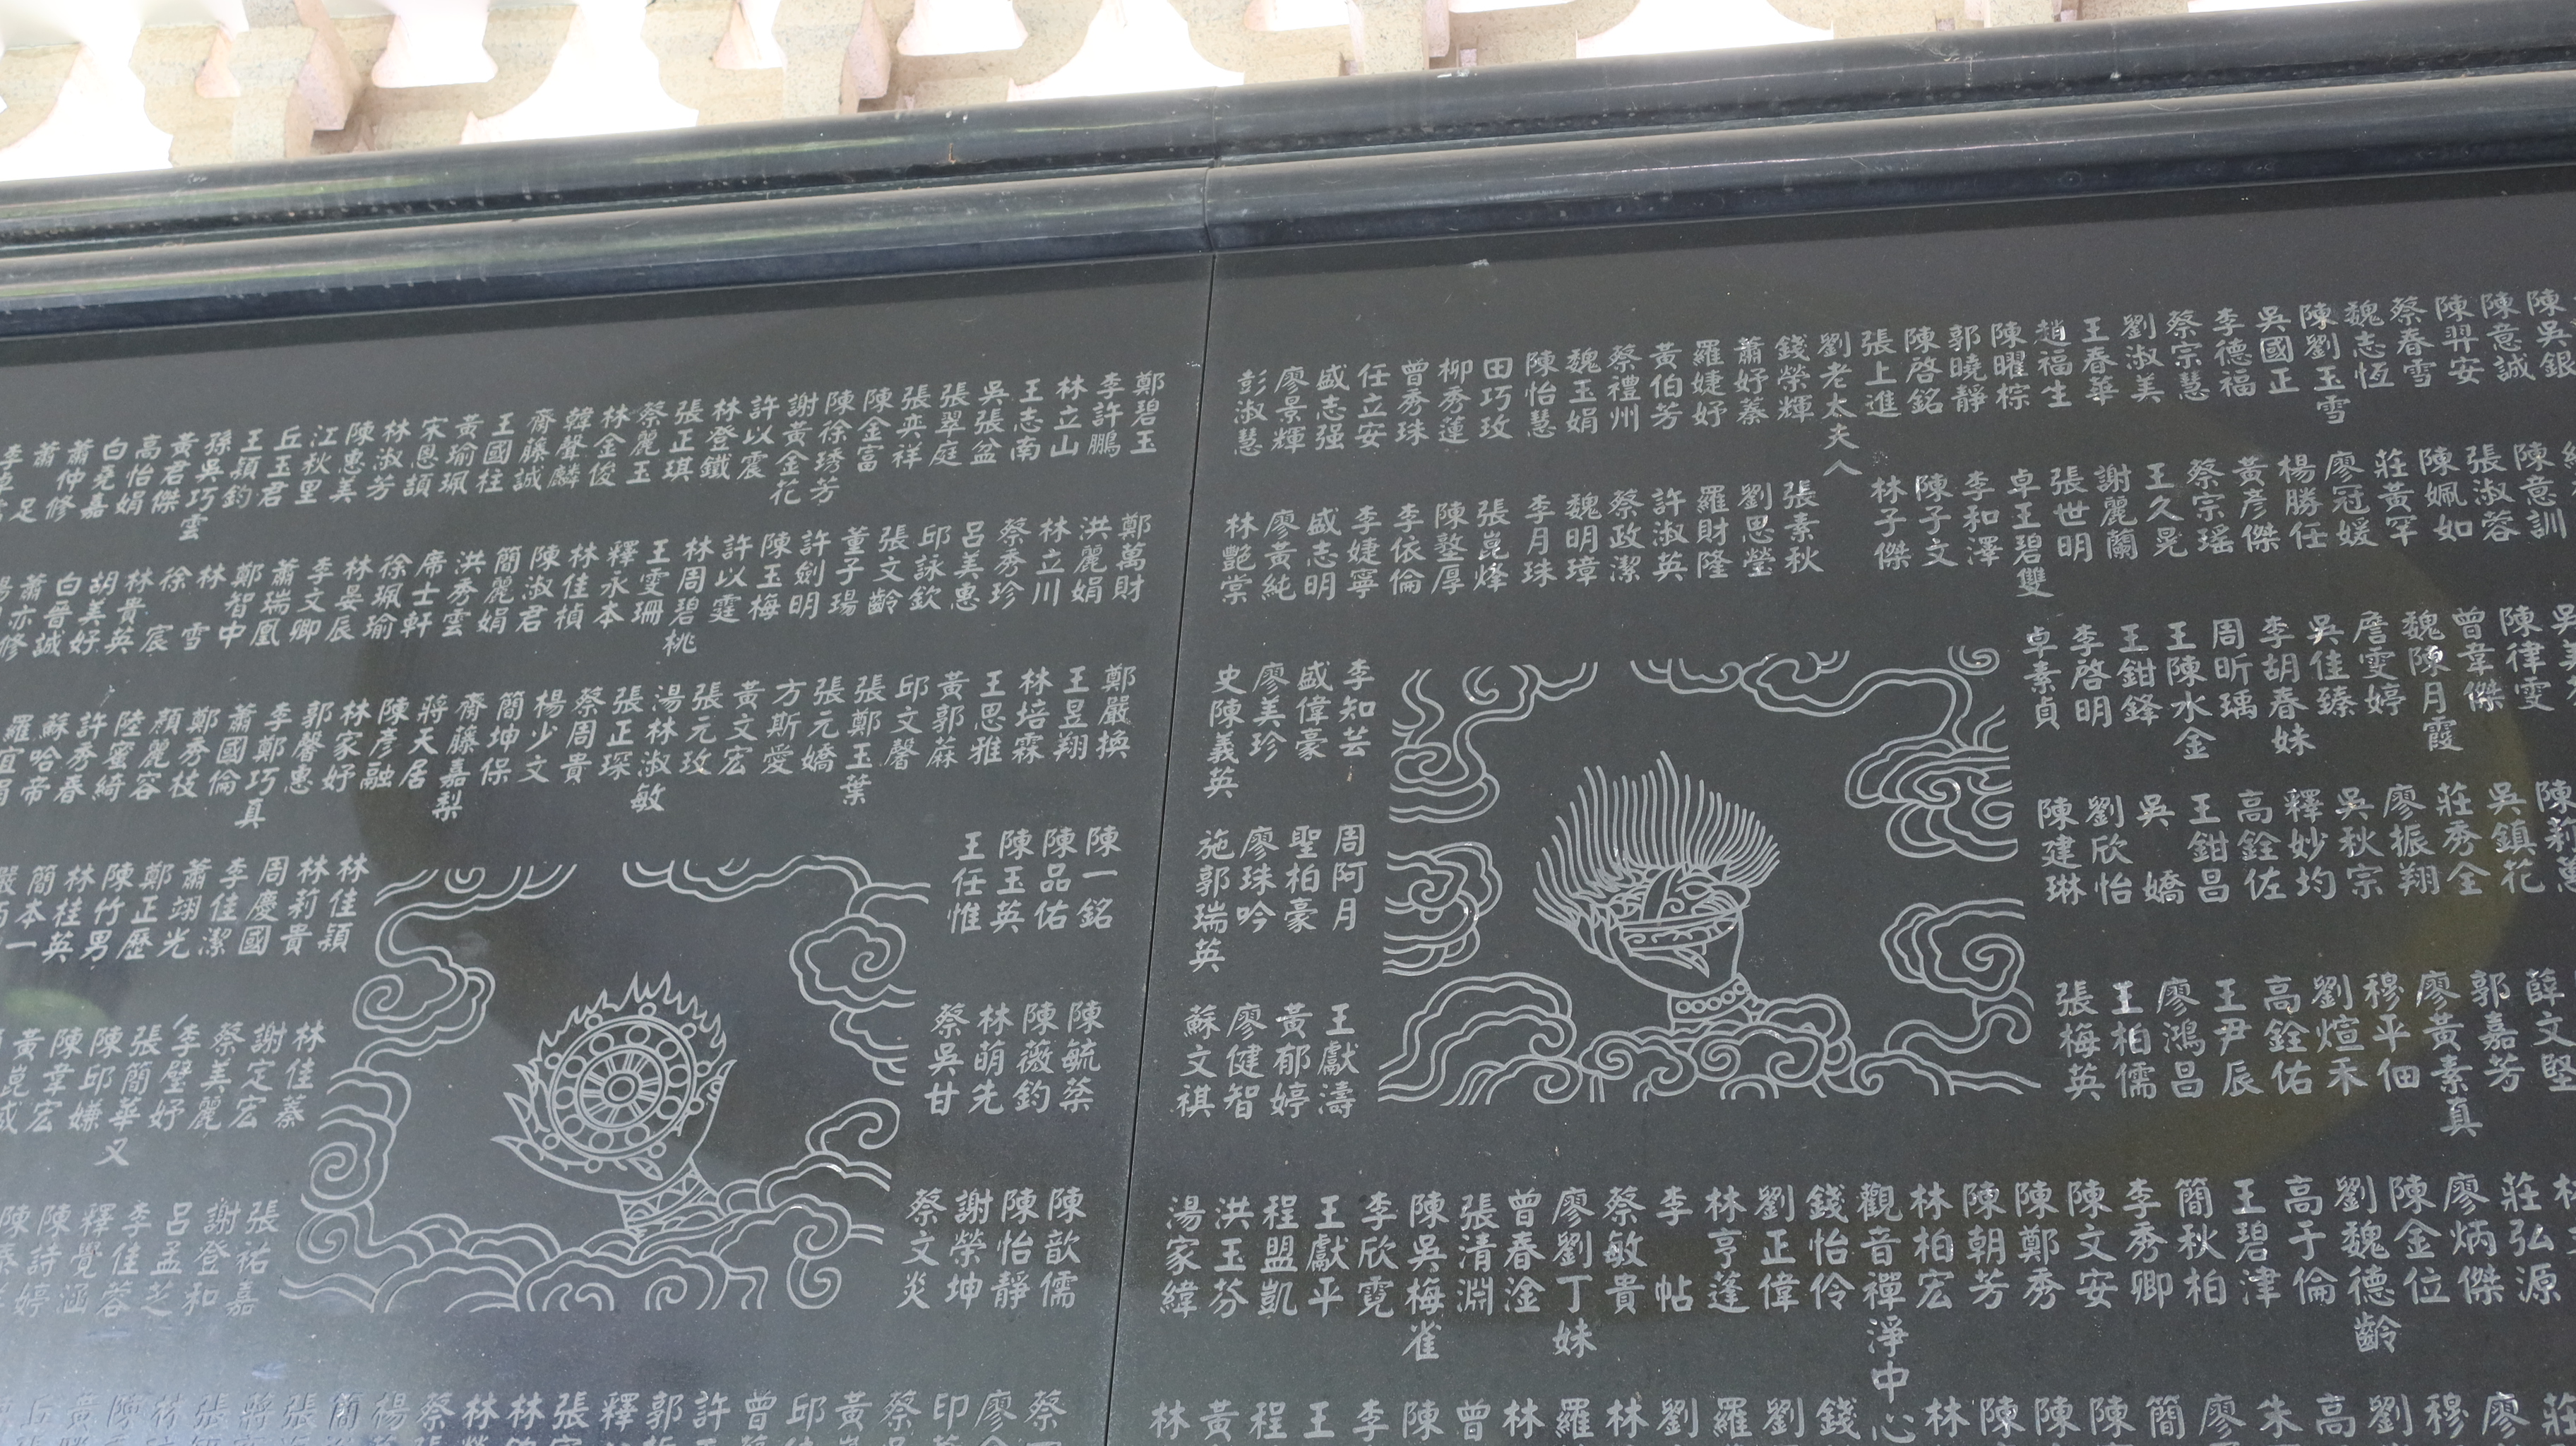 陳吳銀
陳意誠
陳羿安
蔡春雪
魏志恆
陳劉玉雪
吳國正
李德福
蔡宗慧
劉淑美
王春華
趙福生
陳曜棕
郭曉靜
陳啓銘
張上進
劉老太夫人
錢榮輝
蕭妤蓁
羅婕妤
黃伯芳
蔡禮州
魏玉娟
陳怡慧
田巧玫
柳秀蓮
曾秀珠
任立安
盛志强
廖景輝
彭淑慧
陳意訓
張淑蓉
陳姵如
莊黃罕
廖冠媛
楊勝任
黃彥傑
蔡宗瑤
王久晃
謝麗蘭
張世明
卓王碧雙
李和澤
陳子文
林子傑
張素秋
劉思瑩
羅財隆
許淑英
蔡政潔
魏明璋
李月珠
張崑烽
陳墪厚
李依倫
李婕寧
盛志明
廖黃純
林艷棠
陳律雯
曾韋傑
魏陳月霞
詹雯婷
吳佳臻
李胡春妹
周昕瑀
王陳水金
王鉗鋒
李啓明
卓素貞
李知芸
盛偉豪
廖美珍
史陳義英
吳鎮花
莊秀全
廖振翔
吳秋宗
釋妙均
高銓佐
王鉗昌
吳嬌
劉欣怡
陳建琳
周阿月
聖柏豪
廖珠吟
施郭瑞英
薛文堅
郭嘉芳
廖黃素真
穆平佃
劉煊禾
高銓佑
王尹辰
廖鴻昌
王柏儒
張梅英
王獻濤
黃郁婷
廖健智
蘇文祺
莊弘源
廖炳傑
陳金位
劉魏德齡
高于倫
王碧津
簡秋柏
李秀卿
陳文安
陳鄭秀
陳朝芳
林柏宏
觀音禪淨中心
錢怡伶
劉正偉
林亨蓬
李帖
蔡敏貴
廖劉丁妹
曾春淦
張清淵
陳吳梅雀
李欣霓
王獻平
程盟凱
洪玉芬
湯家緯
莊
廖
穆
劉
高
朱
廖
簡
陳
陳
陳
林
錢
劉
羅
劉
林
羅
林
曾
陳
李
王
程
黃
林
鄭碧玉
李許鵬
林立山
王志南
吳張盆
張翠庭
張奕祥
陳金富
陳徐琇芳
謝黃金花
許以震
林登鐵
張正琪
蔡麗玉
林金俊
韓聲麟
齊藤誠
王國柱
黃瑜珮
宋恩頡
林淑芳
陳惠美
江秋里
丘玉君
王穎鈞
孫吳巧雲
黃君傑
高怡娟
白堯嘉
蕭仲修
鄭萬財
洪麗娟
林立川
蔡秀珍
呂美惠
邱詠欽
張文齡
董子瑒
許劍明
陳玉梅
許以霆
林周碧桃
王雯珊
釋永本
林佳楨
陳淑君
簡麗娟
洪秀雲
席士軒
徐珮瑜
林晏辰
李文卿
蕭瑞凰
鄭智中
林雪
徐宸
林貴英
胡美好
白晉誠
蕭亦修
鄭嚴換
王昱翔
林培霖
王思雅
黃郭蔴
邱文馨
張鄭玉葉
張元嬌
方斯愛
黃文宏
張元玫
湯林淑敏
張正琛
蔡周貴
楊少文
簡坤保
齊藤嘉梨
蔣天居
陳彥融
林家妤
郭馨惠
李鄭巧真
蕭國倫
鄭秀枝
顏麗容
陸蜜綺
許秀春
蘇哈帝
陳一銘
陳品佑
陳玉英
王任惟
林佳穎
林莉貴
周慶國
李佳潔
蕭翊光
鄭正歷
陳竹男
林桂英
簡本一
陳毓棻
陳薇鈞
林萌先
蔡吳甘
林佳蓁
謝定宏
蔡美麗
李壁妤
張簡華又
陳邱嫌
陳韋宏
陳歆儒
陳怡靜
謝榮坤
蔡文炎
張祐嘉
謝登和
呂孟芝
李佳蓉
釋覺涵
陳詩婷
蔡
廖
印
蔡
黃
邱
曾
許
郭
釋
張
林
林
蔡
楊
簡
張
蔣
張
林
陳
黃
丘